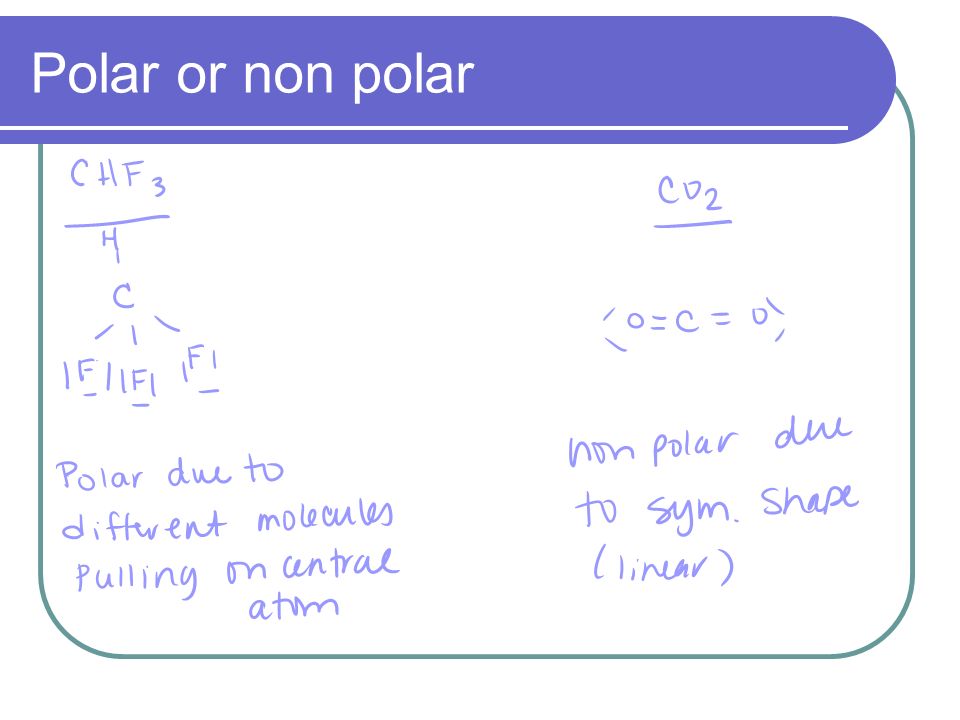 Polar or non polar
CHF3
H
C
F F F
Polar due to
different molecules
pulling on central
atom
CO2
O=C=O
non polar due
to sym. shape
(linear)